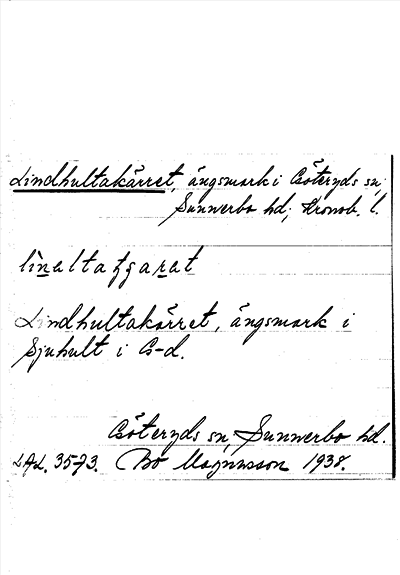 Lindhultakärret, ängsmark i Göteryds sn,
Sunnerbo hd; Kronob. l.
Lindhultakärret, ängsmark i
Sjuhult i G-d.
Göteryds sn, Sunnerbo hd.
LAL. 3573. Bo Magnusson 1938.